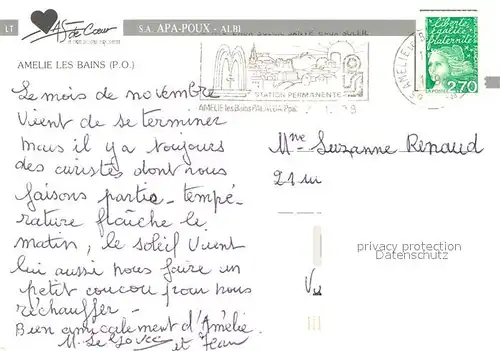 LT
As de Cœur
S.A. APA-POUX - ALBI
AMELIE LES BAINS (P.O.)
STATION PERMANENTE
liberté
égalité
fraternité
2,70
Le mois de novembre
vient de se terminer
mais il y a toujours
des curistes dont nous
faisons partie - tempé-
rature fraîche le
matin, le soleil vient
lui aussi nous faire un
petit coucou pour nous
réchauffer -
Bien amicalement d'Amélie
et Jean
Mme Suzanne Renaud
21
privacy protection
Datenschutz